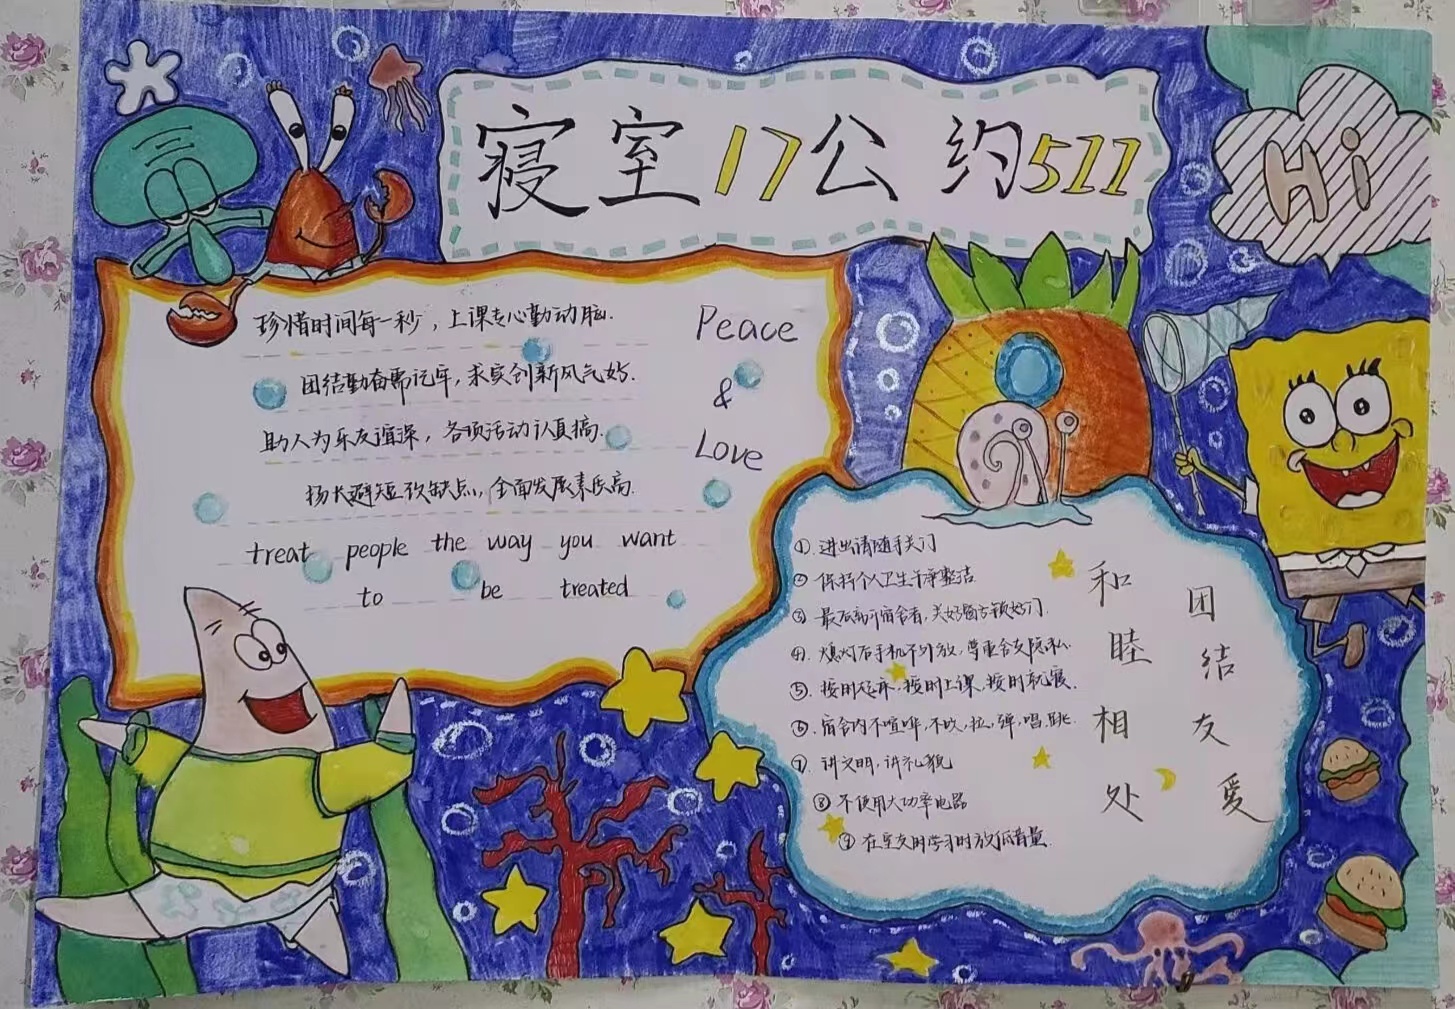 寝室17公约511
Hi
珍惜时间每一秒，上课专心勤动脑.
团结勤奋需记牢，求实创新风气好.
助人为乐友谊深，各项活动认真搞.
扬长避短改缺点，全面发展素质高.
treat people the way you want
to be treated
Peace
&
Love
①. 进出请随手关门
② 保持个人卫生干净整洁
③ 最后离开宿舍者，关好窗户锁好门.
④. 熄灯后手机不外放，尊重舍友隐私.
⑤. 按时起床，按时上课，按时就寝.
⑥. 宿舍内不喧哗，不吹，拉，弹，唱，跳.
⑦. 讲文明，讲礼貌
⑧ 不使用大功率电器
⑨ 在室友用学习时放低音量.
和睦相处
团结友爱